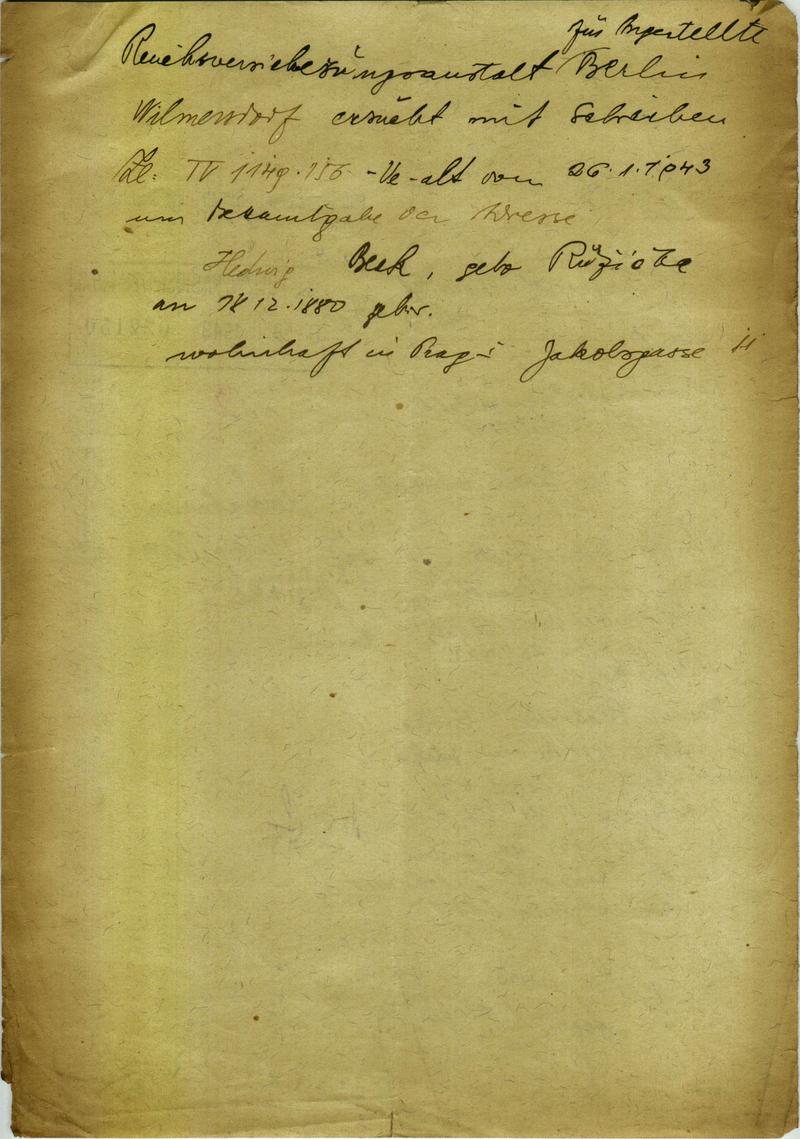 für Angestellte
Reichsversicherungsanstalt Berlin
Wilmersdorf ersucht mit Schreiben
Zl: IV 1149.156 -Ve-alt vom 26.1.1943
um Bekanntgabe der Adresse
Hedwig Beck, geb.
am 18 12.1880 gebor.
wohnhaft in Prag-I Jakobsgasse